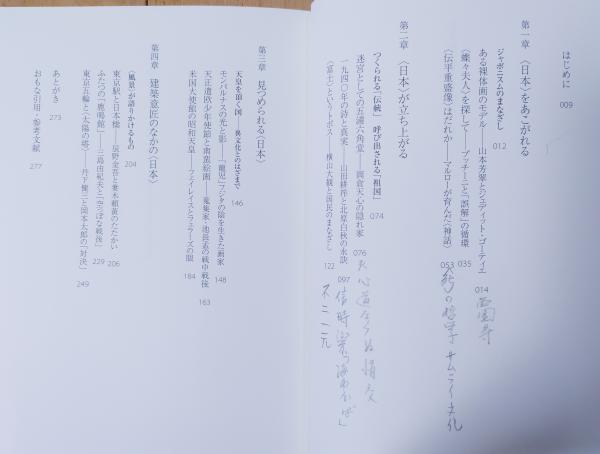 はじめに 009
第一章 〈日本〉をあこがれる
ジャポニスムのまなざし 012
ある裸体画のモデル——山本芳翠とジュディット・ゴーティエ 014
〈蝶々夫人〉を探して——プッチーニと「誤解」の循環 035
〈伝平重盛像〉はだれか——マルローが育んだ〈神話〉 053
第二章 〈日本〉が立ち上がる
つくられる「伝統」 呼び出される「祖国」 074
迷宮としての五浦六角堂——岡倉天心の隠れ家 076
一九四〇年の詩と真実——山田耕筰と北原白秋の永訣 097
〈富士〉というトポス——横山大観と国民のまなざし 122
西園寺
の哲学 サムライ文化
天心道ならぬ情交
信時潔の海ゆかば」
不二一元
第三章 見つめられる〈日本〉
天皇を頂く国——異文化とのはざまで 146
モンパルナスの光と影——「寵児」フジタの陰を生きた画家 148
天正遣欧少年使節と南蛮絵画——蒐集家・池長孟の戦中戦後 163
米国大使館の昭和天皇——フェイレイスとフェラーズの眼 184
第四章 建築意匠のなかの〈日本〉
〈風景〉が語りかけるもの 204
東京駅と日本橋——辰野金吾と妻木頼黄のたたかい 206
ふたつの「鹿鳴館」——三島由紀夫と「空っぽな戦後」 229
東京五輪と〈太陽の塔〉——丹下健三と岡本太郎の「対決」 249
あとがき 273
おもな引用・参考文献 277